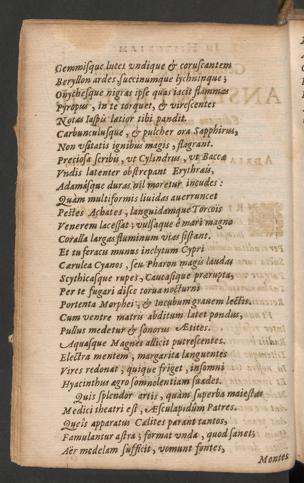 Gemmisque lutes vndique & coruscantem
Beryllon ardes, succinumque lychninque;
Onychesque nigras ipse quas iacit flammas
Pyropus, in te torquet, & virescentes
Notas Iaspis latior tibi pandit.
Carbunculusque, & pulcher ora Sapphirus,
Non vsitatis ignibus magis, flagrant.
Preciosa scribis, vt Cylindrus, vt Bacca
Vndis latenter obstrepant Erythræis,
Adamasque duras nil moretur incudes:
Quàm multiformis liuidas auerruncet
Pestes Achates, languidamque Torcois
Venerem lacessat; vulsaque è mari magno
Coralla largas fluminum vias sistant.
Et tu feracis munus inclytum Cypri
Cærulea Cyanos, seu Pharon magis laudas
Scythicasque rupes, Caucasique prærupta,
Per te fugari disce torua nocturni
Portenta Morphei, & incubum grauem lectis.
Cum ventre matris abditum latet pondus,
Pullus medetur & sonorus Ætites.
Aquasque Magnes allicit putrescentes.
Electra mentem, margarita languentes
Vires redonat, quique friget, insomni
Hyacinthus agro somnolentiam suadet.
Quis splendor artis, quàm superba maiestas
Medici theatri est, Æsculapidûm Patres.
Queis apparatus Cælites parant tantos,
Famulantur astra; format vnda, quod sanet;
Aër medelam sufficit, vomunt fontes,
Montes